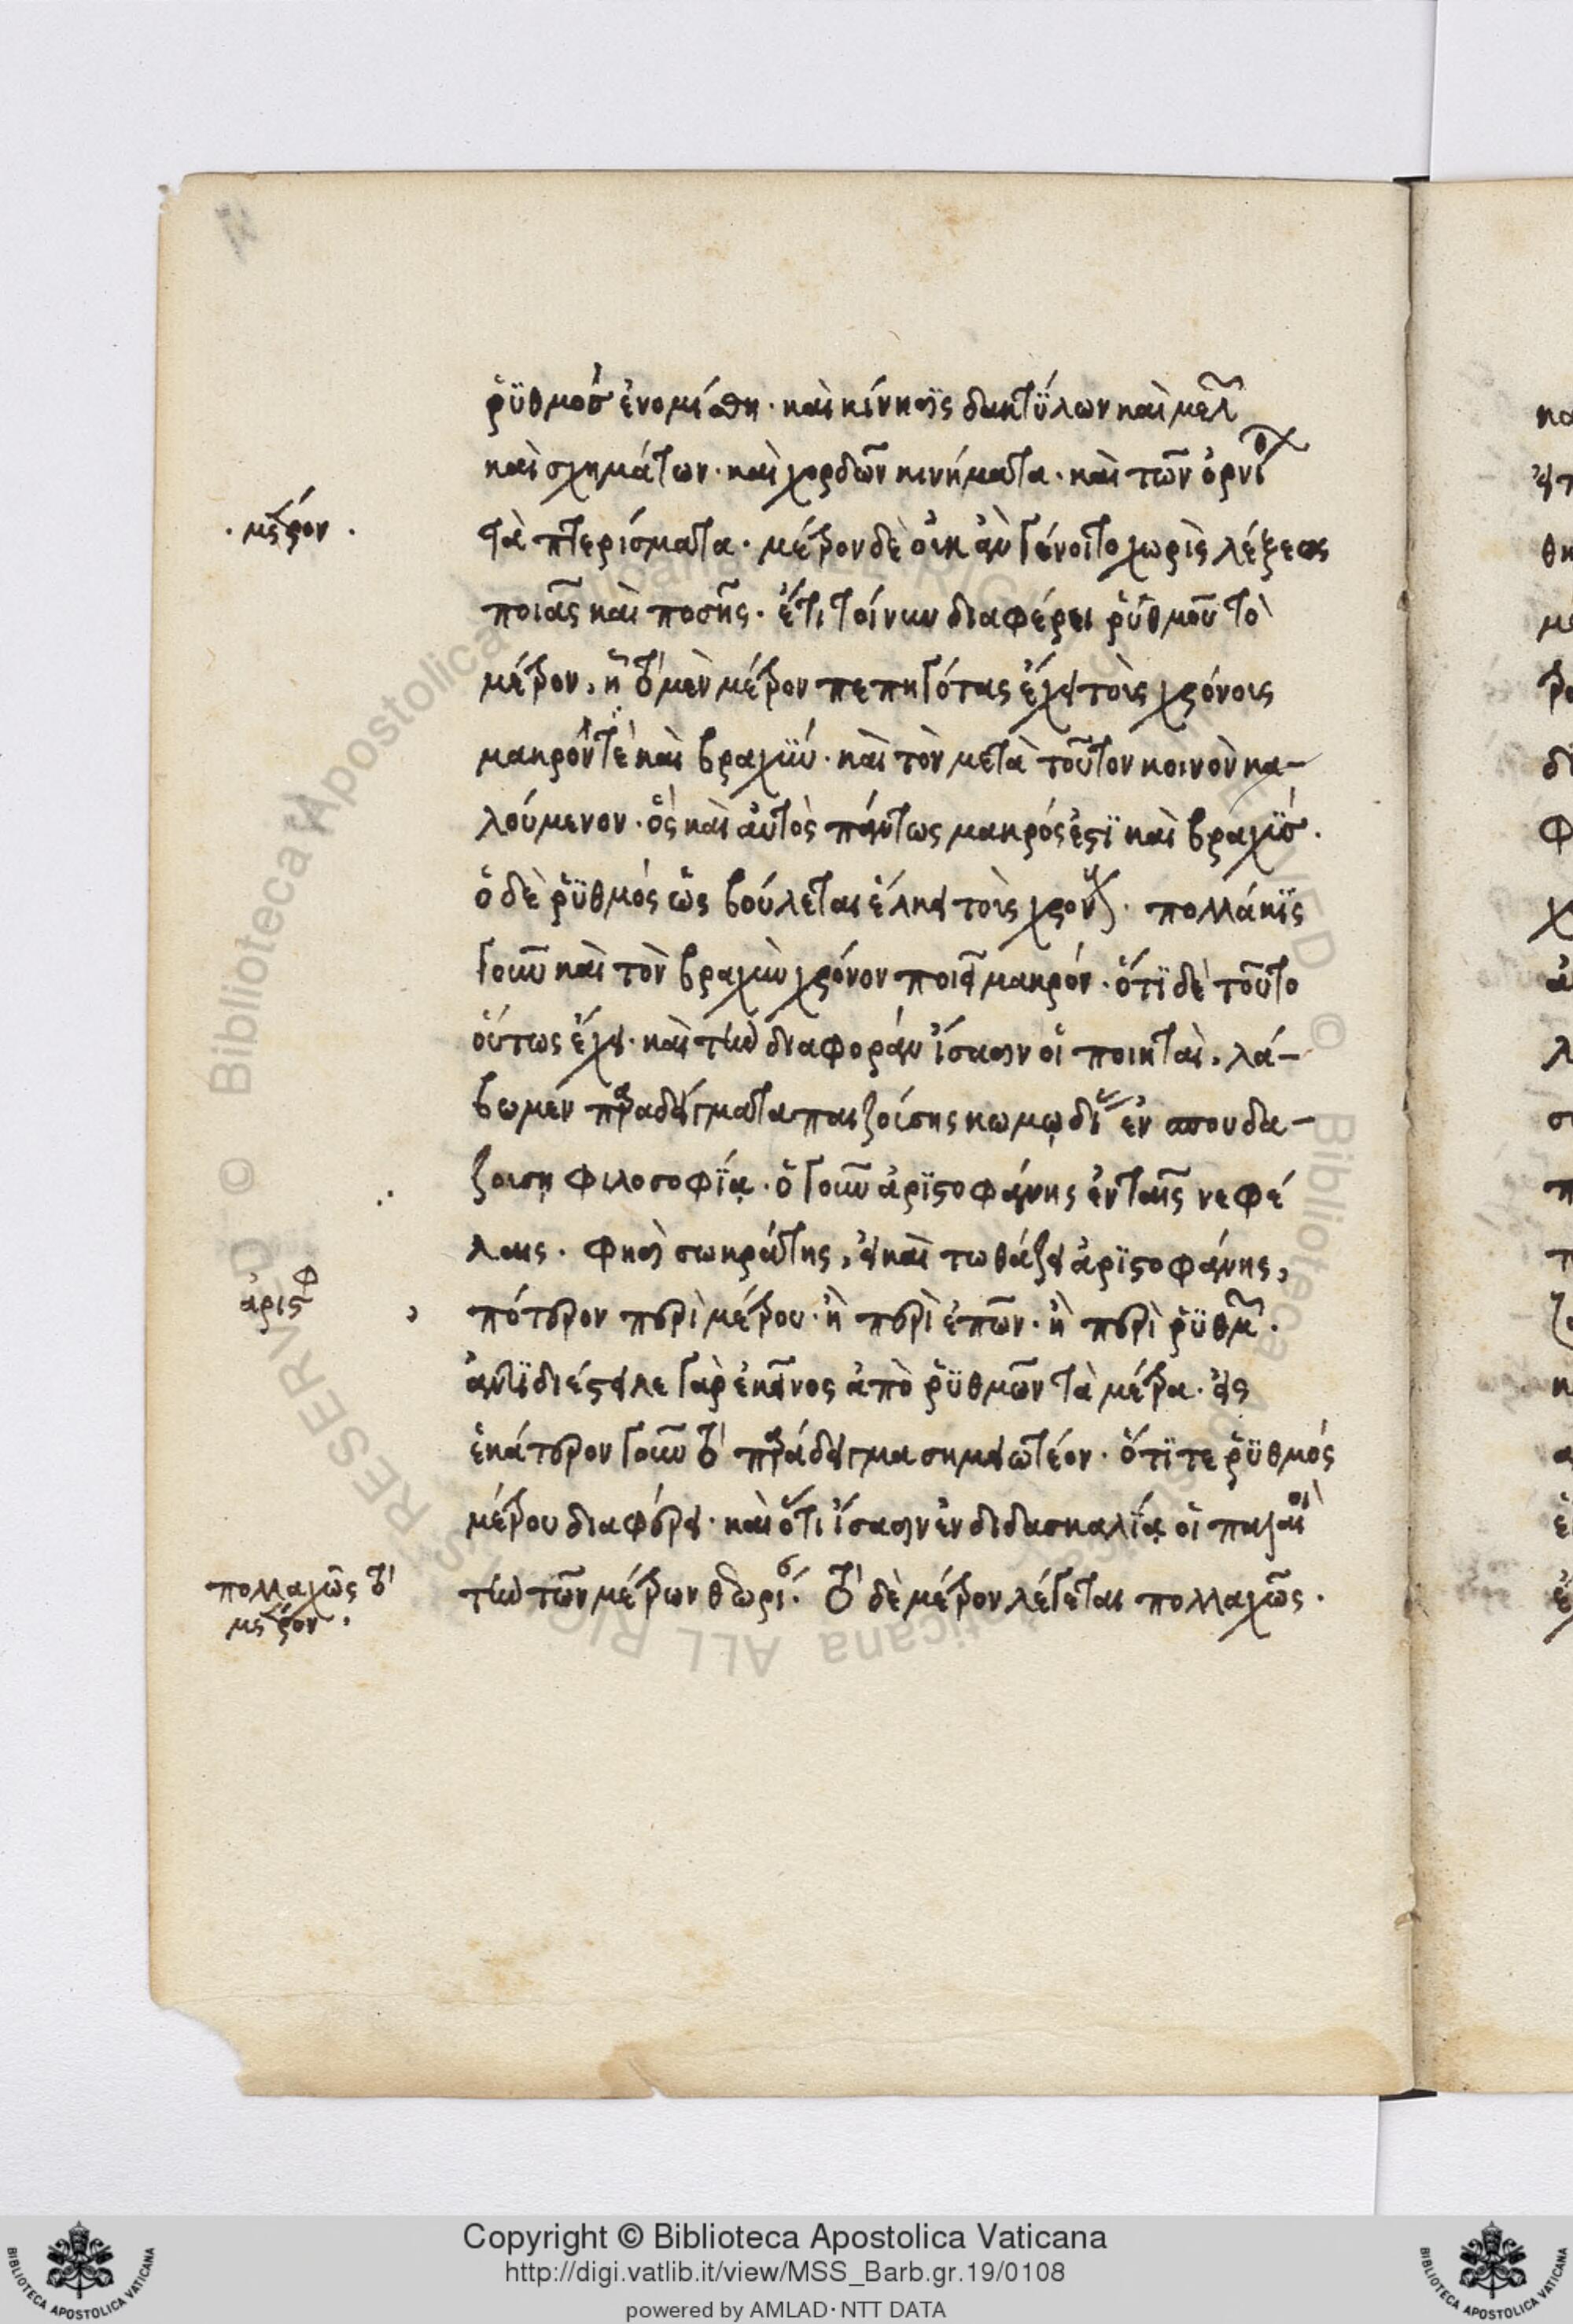 ῥϋθμὸσ ἐνομίσθη· καὶ κίνησϊς δακτΰλων καὶ μελ
καὶ σχημάτων· καὶ χορδῶν κινήματα· καὶ τῶν ὀρνίθ
· μέτρον ·
τὰ πτερίσματα· μέτρον δὲ οὐκ ἂν γένοιτο χωρὶς λέξεως
ποιᾶς καὶ ποσῆς· ἔτι τοίνυν διαφέρει ῥύθμοῦ τὸ
μέτρον, ἧ τὸ μὲν μέτρον πεπηγότας ἔχει τοὺς χρόνους
μακρόν τε καὶ βραχϋν· καὶ τὸν μετὰ τοῦτον κοινὸν κα-
λούμενον· ὃς καὶ αὐτὸς πάντως μακρός ἐστϊ καὶ βραχϋσ·
ὁ δὲ ῥϋθμός ὡς βούλεται ἕλκει τοὺς χρόν· πολλάκϊς
γοῦν καὶ τὸν βραχὺν χρόνον ποιεῖ μακρόν· ὅτϊ δὲ τοῦτο
οὕτως ἔχει· καὶ τὴν διαφορὰν ἴσασιν οἱ ποιηταὶ, λά-
βωμεν παραδείγματα παιζούσης κωμωδίας ἐν σπουδα-
ζουση φιλοσοφΐᾳ· ὁ γοῦν ἀρϊστοφάνης ἐν ταῖς νεφέ
λαις· φησὶ σωκράτης, εἰ καὶ τωθάζει ἀρϊστοφάνης,
ἀριστφ
πότερον περὶ μέτρου· ἢ περὶ ἐπῶν· ἢ περὶ ῥϋθμ·
ἀντϊδιέστειλε γὰρ ἐκεῖνος ἀπὸ ῥϋθμῶν τὰ μέτρα· εἰς
ἑκάτερον γοῦν τὸ παράδειγμα σημειωτέον· ὅτϊ τε ῥϋθμός
μέτρου διαφέρει· καὶ ὅτι ἴσασιν ἐν διδασκαλΐᾳ οἱ παλαιοὶ
πολλαχῶς τὸ
μέτρον·
τὴν τῶν μέτρων θεωρί· τὸ δὲ μέτρον λέγεται πολλαχῶς·
Copyright © Biblioteca Apostolica Vaticana
http://digi.vatlib.it/view/MSS_Barb.gr.19/0108
powered by AMLAD·NTT DATA